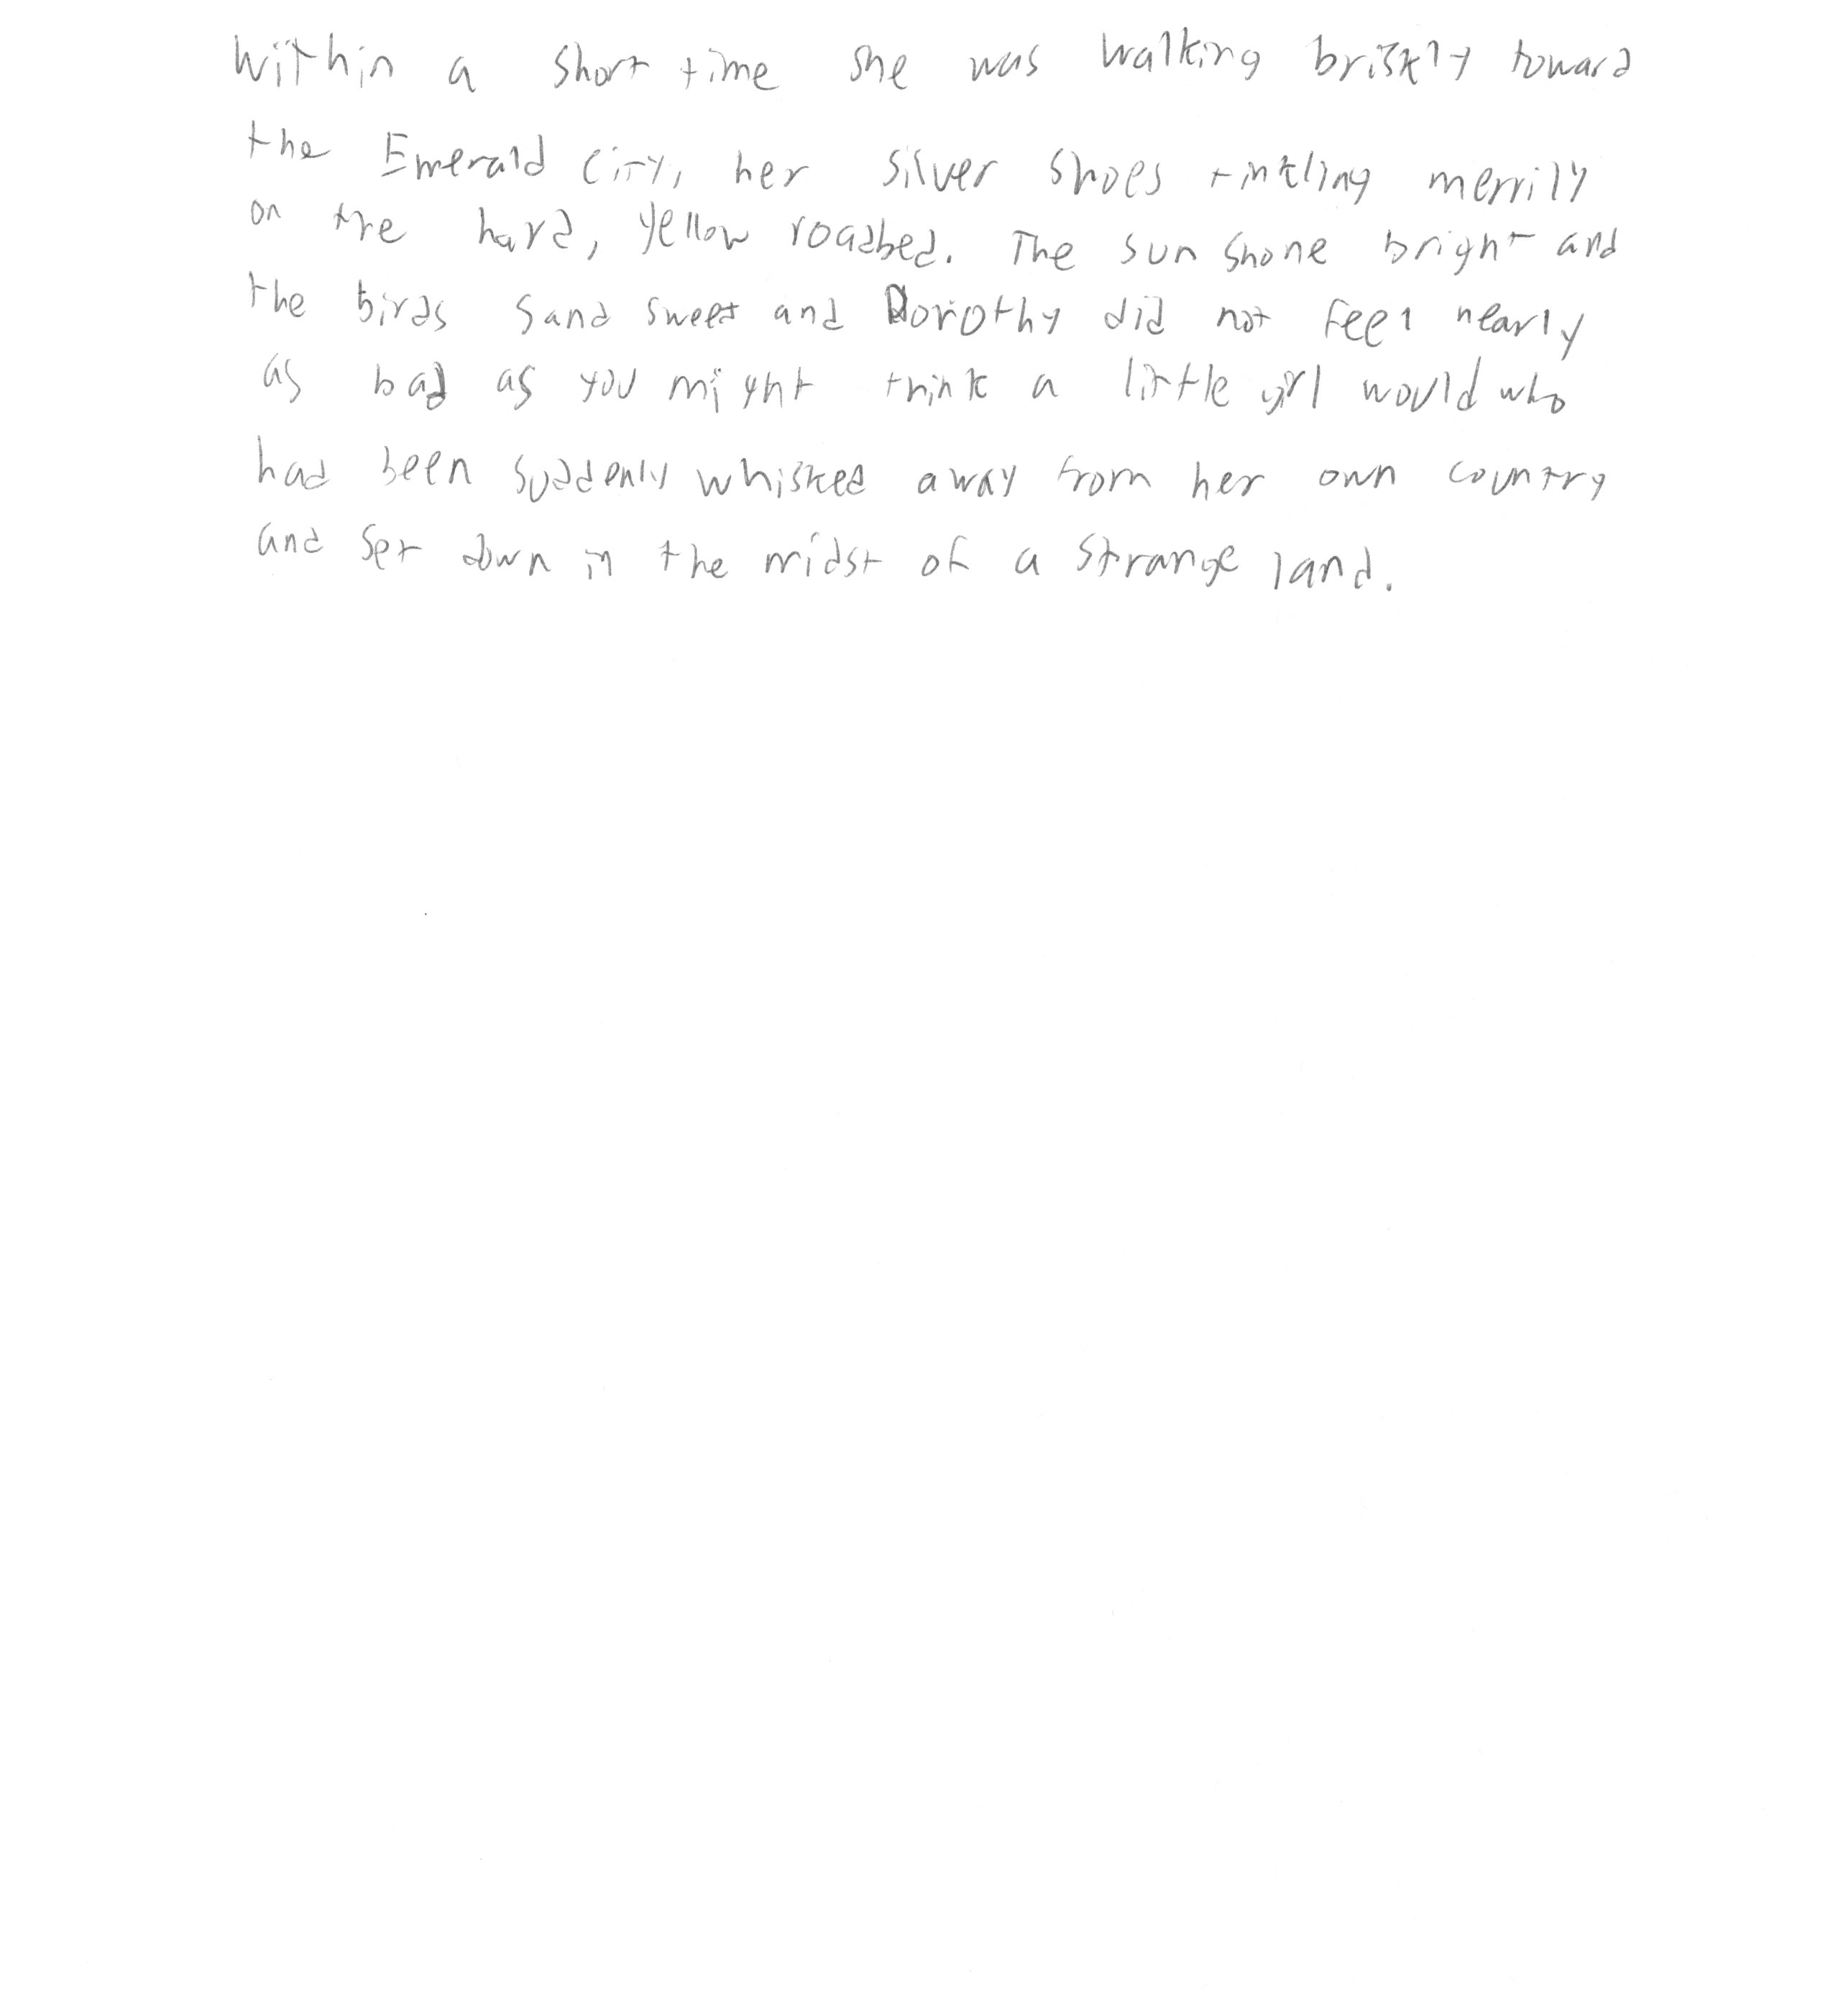 Within a short time she was walking briskly toward
the Emerald City, her silver shoes tinkling merrily
on the hard, yellow roadbed. The sun shone bright and
the birds sand sweet and Dorothy did not feel nearly
as bad as you might think a little girl would who
had been suddenly whisked away from her own country
and set down in the midst of a strange land.